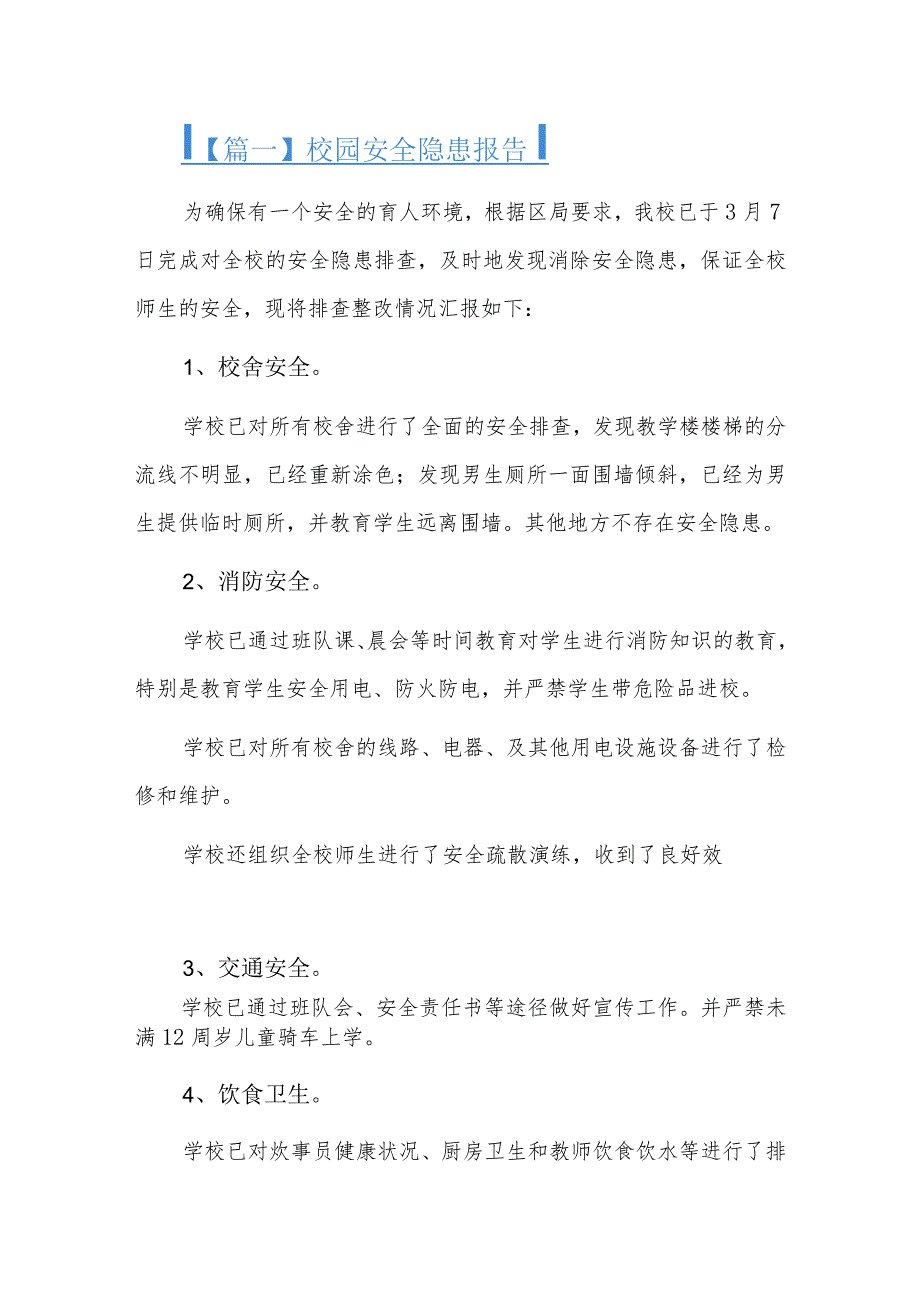 【篇一】校园安全隐患报告
为确保有一个安全的育人环境，根据区局要求，我校已于3月7
日完成对全校的安全隐患排查，及时地发现消除安全隐患，保证全校
师生的安全，现将排查整改情况汇报如下：
1、校舍安全。
学校已对所有校舍进行了全面的安全排查，发现教学楼楼梯的分
流线不明显，已经重新涂色；发现男生厕所一面围墙倾斜，已经为男
生提供临时厕所，并教育学生远离围墙。其他地方不存在安全隐患。
2、消防安全。
学校已通过班队课、晨会等时间教育对学生进行消防知识的教育，
特别是教育学生安全用电、防火防电，并严禁学生带危险品进校。
学校已对所有校舍的线路、电器、及其他用电设施设备进行了检
修和维护。
学校还组织全校师生进行了安全疏散演练，收到了良好效
3、交通安全。
学校已通过班队会、安全责任书等途径做好宣传工作。并严禁未
满12周岁儿童骑车上学。
4、饮食卫生。
学校已对炊事员健康状况、厨房卫生和教师饮食饮水等进行了排